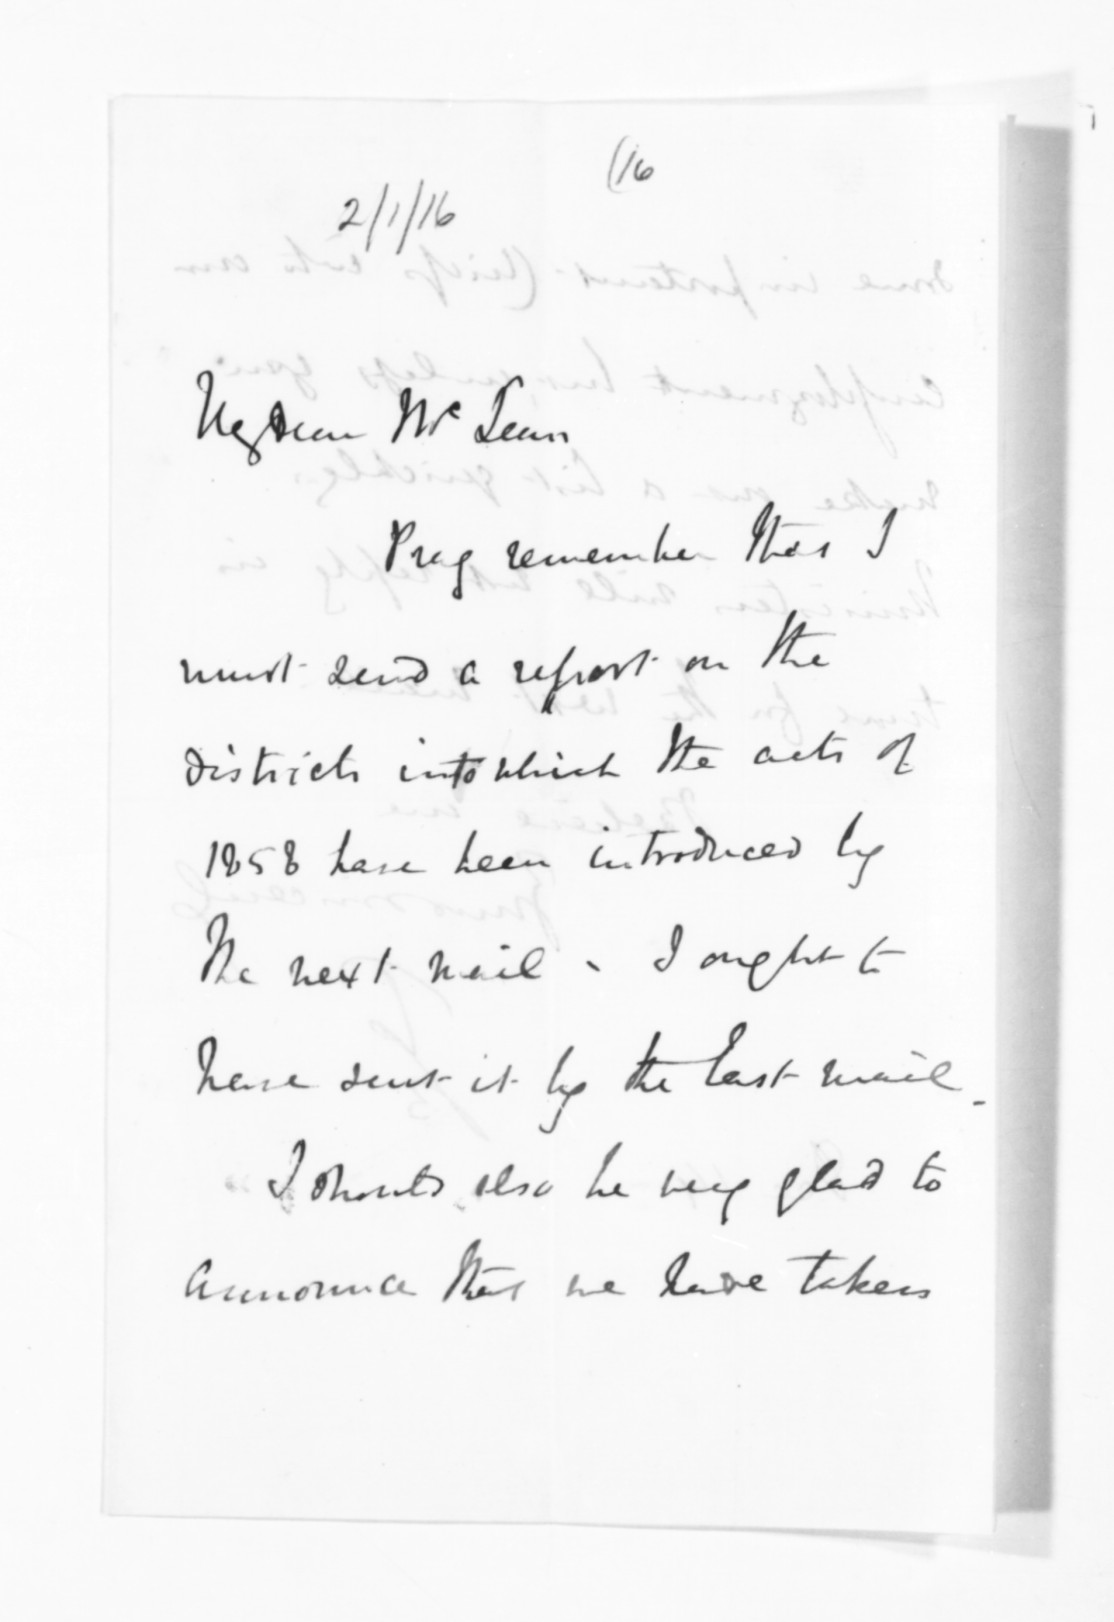 (16
2/1/16
My dear McLean
Pray remember that I
must send a report on the
districts into which the acts of
1858 have been introduced by
the next mail. I ought to
have sent it by the last mail.
I should also be very glad to
announce that we have taken